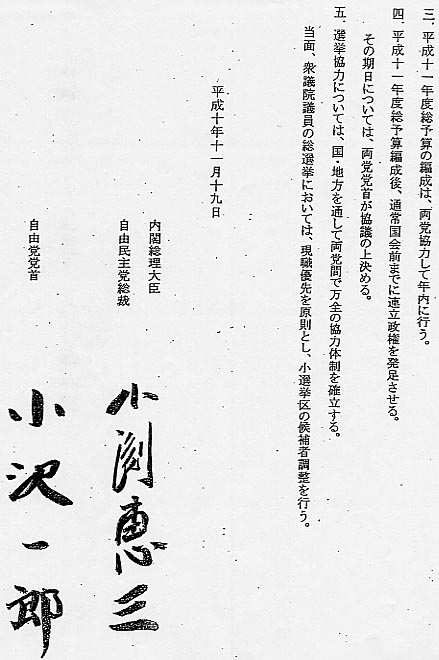 三．平成十一年度総予算の編成は、両党協力して年内に行う。
四．平成十一年度総予算編成後、通常国会前までに連立政権を発足させる。
その期日については、両党党首が協議の上決める。
五．選挙協力については、国・地方を通して両党間で万全の協力体制を確立する。
当面、衆議院議員の総選挙においては、現職優先を原則とし、小選挙区の候補者調整を行う。
平成十年十一月十九日
内閣総理大臣
自由民主党総裁
小渕恵三
自由党党首
小沢一郎